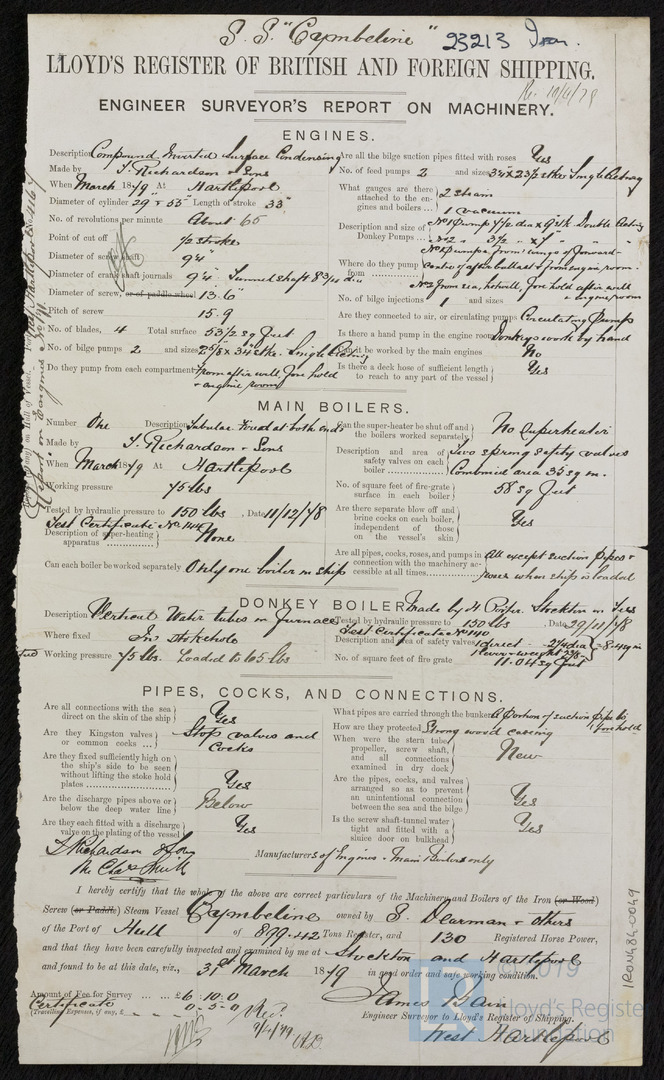 S. S. "Cymbeline" 23213 Iron.
LLOYD'S REGISTER OF BRITISH AND FOREIGN SHIPPING.
Re. 10/4/79
ENGINEER SURVEYOR'S REPORT ON MACHINERY.
ENGINES.
Description Compound Inverted Surface Condensing
Made by T. Richardson & Sons
When March 1879 At Hartlepool
Diameter of cylinder 29" & 55" Length of stroke 33"
No. of revolutions per minute About 65
Point of cut off 1/2 stroke
Diameter of screw shaft 9 1/4"
Diameter of crank shaft journals 9 1/4" Tunnel shaft 8 3/4 dia
Diameter of screw, or of paddle wheel 13.6"
Pitch of screw 15.9
No. of blades, 4 Total surface 53 1/2 sq feet
No. of bilge pumps 2 and sizes 2 5/8" x 34" stke. Single Acting
Do they pump from each compartment From after well, fore hold & engine room
Are all the bilge suction pipes fitted with roses Yes
No. of feed pumps 2 and sizes 3 1/4" x 23 1/2 stke Single Acting
What gauges are there attached to the engines and boilers ... 2 steam
1 vacuum
Description and size of Donkey Pumps ... No 1 Pump 7 1/2 dia x 9" stk Double Acting
No 2 " 3 1/2 " x 7" " " "
Where do they pump from No 1 Pumps from wings & forward centre of after ballast & from engine room.
No 2 from sea, hotwell, fore hold after well & engine room
No. of bilge injections 1 and sizes
Are they connected to air, or circulating pumps Circulating Pump
Is there a hand pump in the engine room Donkeys work by hand
Can it be worked by the main engines No
Is there a deck hose of sufficient length to reach to any part of the vessel Yes
MAIN BOILERS.
Number One Description Tubular Fired at both ends
Made by T. Richardson & Sons
When March 1879 At Hartlepool
Working pressure 75 lbs
Tested by hydraulic pressure to 150 lbs, Date 11/12/78
Test Certificate No. 144
Description of super-heating apparatus None
Can each boiler be worked separately Only one boiler in ship
Can the super-heater be shut off and the boilers worked separately No Superheater
Description and area of safety valves on each boiler Two spring safety valves
Combined area 35 sq in.
No. of square feet of fire-grate surface in each boiler 58 sq feet
Are there separate blow off and brine cocks on each boiler, independent of those on the vessel's skin Yes
Are all pipes, cocks, roses, and pumps in connection with the machinery accessible at all times All except suction pipes & roses when ship is loaded
DONKEY BOILER Made by H Piper Stockton on Tees
Description Vertical Water tubes in furnace
Where fixed In Stokehole
Working pressure 75 lbs. Loaded to 65 lbs
Tested by hydraulic pressure to 150 lbs Date 29/11/78
Test Certificate No 140
Description and area of safety valves 1 direct - 2 1/4 dia
1 lever & weight 2 3/8 " = 8.4 sq in
No. of square feet of fire grate 11.04 sq feet
PIPES, COCKS, AND CONNECTIONS.
Are all connections with the sea direct on the skin of the ship Yes
Are they Kingston valves or common cocks ... Stop valves and Cocks
Are they fixed sufficiently high on the ship's side to be seen without lifting the stoke hold plates Yes
Are the discharge pipes above or below the deep water line Below
Are they each fitted with a discharge valve on the plating of the vessel Yes
What pipes are carried through the bunkers A Portion of suction pipe to fore hold
How are they protected Strong wood casing
When were the stern tube, propeller, screw shaft, and all connections examined in dry dock New
Are the pipes, cocks, and valves arranged so as to prevent an unintentional connection between the sea and the bilge Yes
Is the screw shaft-tunnel water tight and fitted with a sluice door on bulkhead Yes
T Richardson & Sons
Manufacturers of Engines & Main Boilers only
Per Chas. Smith
I hereby certify that the whole of the above are correct particulars of the Machinery and Boilers of the Iron (or Wood)
Screw (or Paddle) Steam Vessel Cymbeline owned by P. Dearman & others
of the Port of Hull of 899.42 Tons Register, and 130 Registered Horse Power,
and that they have been carefully inspected and examined by me at Stockton and Hartlepool
and found to be at this date, viz., 31st March 1879 in good order and safe working condition.
Amount of Fee for Survey ... £6.10.0
Certificate 0-5-0
(Travelling Expenses, if any, £
James Bain
Engineer Surveyor to Lloyd's Register of Shipping.
West Hartlepool
Rec. 9/4/79
IRON484-0049
© 2019
Lloyd's Register Foundation